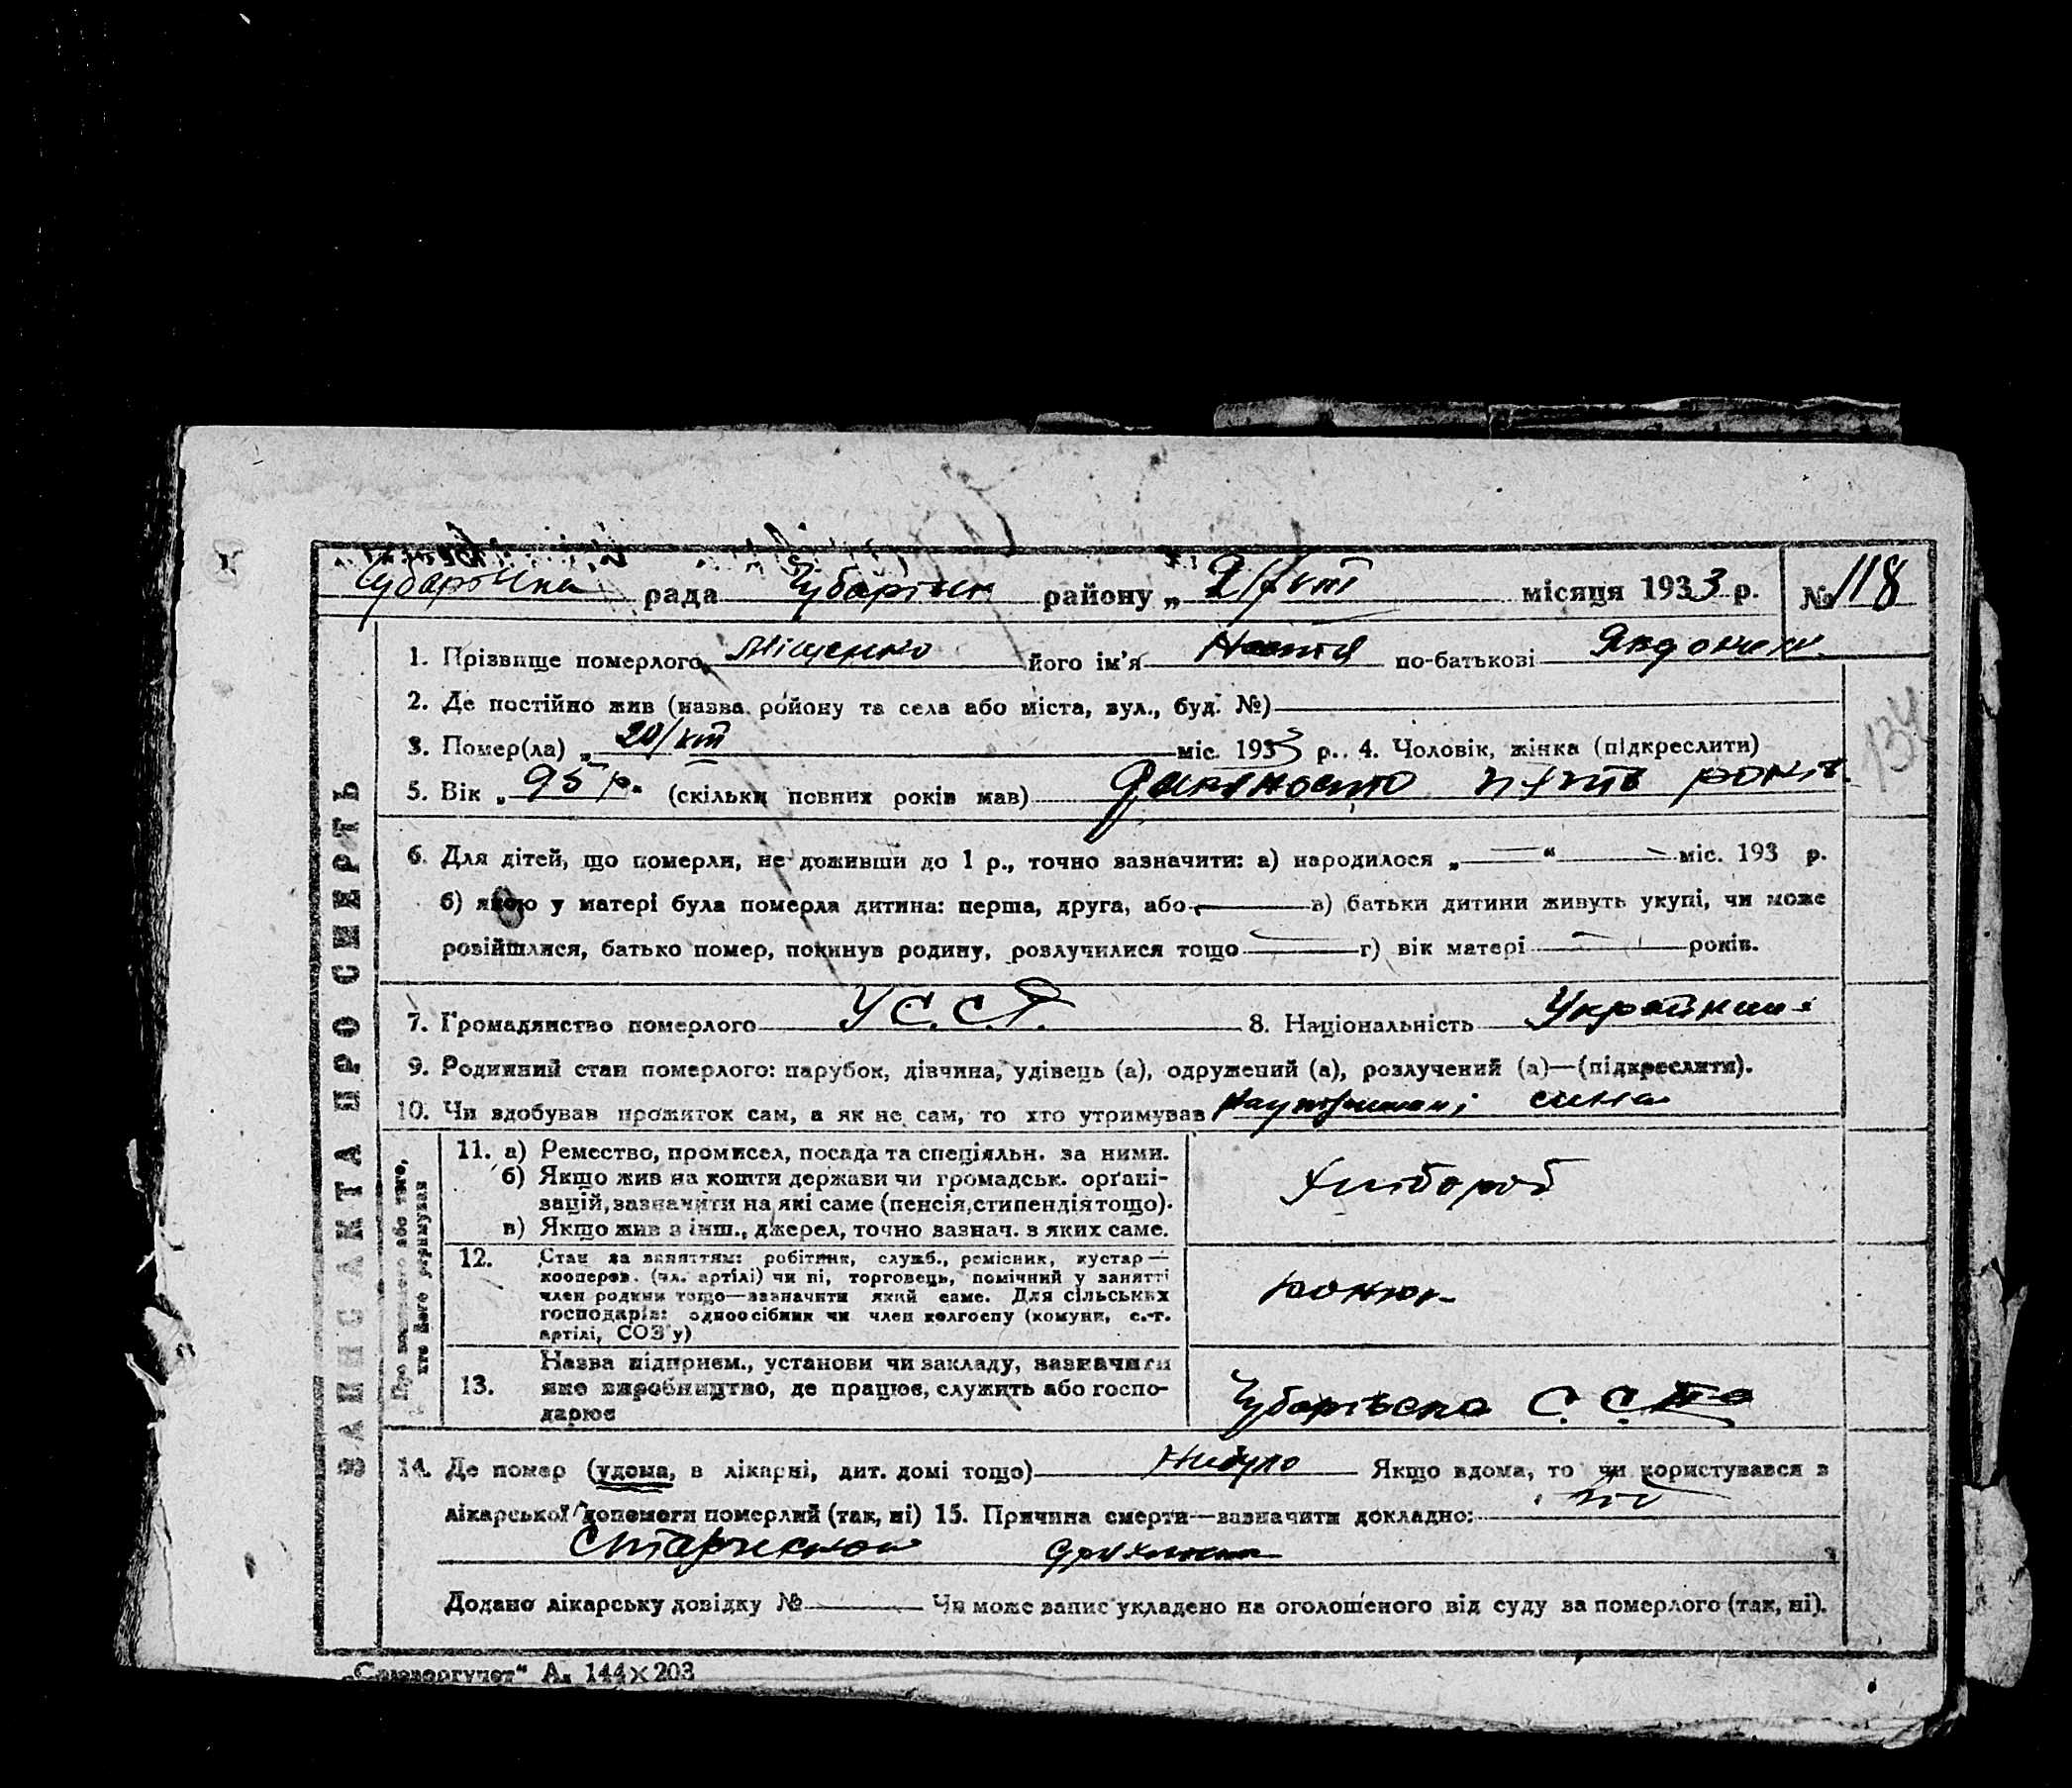 Чубарівська рада Чубарівськ району „ 21/VIII місяця 1933 р. № 118
ЗАПИС АКТА ПРО СМЕРТЬ
1. Прізвище померлого Міщенко його ім'я Настя по-батькові
134
2. Де постійно жив (назва району та села або міста, вул., буд. №)
3. Помер(ла) „ 20/VIII міс. 1933 р. 4. Чоловік, жінка (підкреслити)
5. Вік „ 95 р. (скільки повних років мав) Девяносто пять років
6. Для дітей, що померли, не доживши до 1 р., точно зазначити: а) народилося „ — “ — міс. 193 р.
б) якою у матері була померла дитина: перша, друга, або — в) батьки дитини живуть укупі, чи може
розійшлися, батько помер, покинув родину, розлучилися тощо — г) вік матері — років.
7. Громадянство померлого У.С.С.Р. 8. Національність
9. Родинний стан померлого: парубок, дівчина, удівець (а), одружений (а), розлучений (а)—(підкреслити).
10. Чи здобував прожиток сам, а як не сам, то хто утримував на утриманні сина
Про померлого або того, хто його утримував
11. а) Ремество, промисел, посада та спеціяльн. за ними.
б) Якщо жив на кошти держави чи громадськ. орґані-
зацій, зазначити на які саме (пенсія, стипендія тощо).
в) Якщо жив з інш., джерел, точно зазнач. з яких саме.
Хлібороб
12. Стан за заняттям: робітник, служб., ремісник, кустар—
кооперов. (чл. артілі) чи ні, торговець, помічний у занятті
член родини тощо—зазначити який саме. Для сільських
господарів: одноосібник чи член колгоспу (комуни, с.-г.
артілі, СОЗ'у)
13. Назва підприєм., установи чи закладу, зазначити
яке виробництво, де працює, служить або госпо-
дарює
Чубарівска С.
14. Де помер (удома, в лікарні, дит. домі тощо) Якщо вдома, то чи користувався з
лікарської допомоги померлий (так, ні) 15. Причина смерти—зазначити докладно:
Додано лікарську довідку № — Чи може запис укладено на оголошеного від суду за померлого (так, ні).
А. 144×203